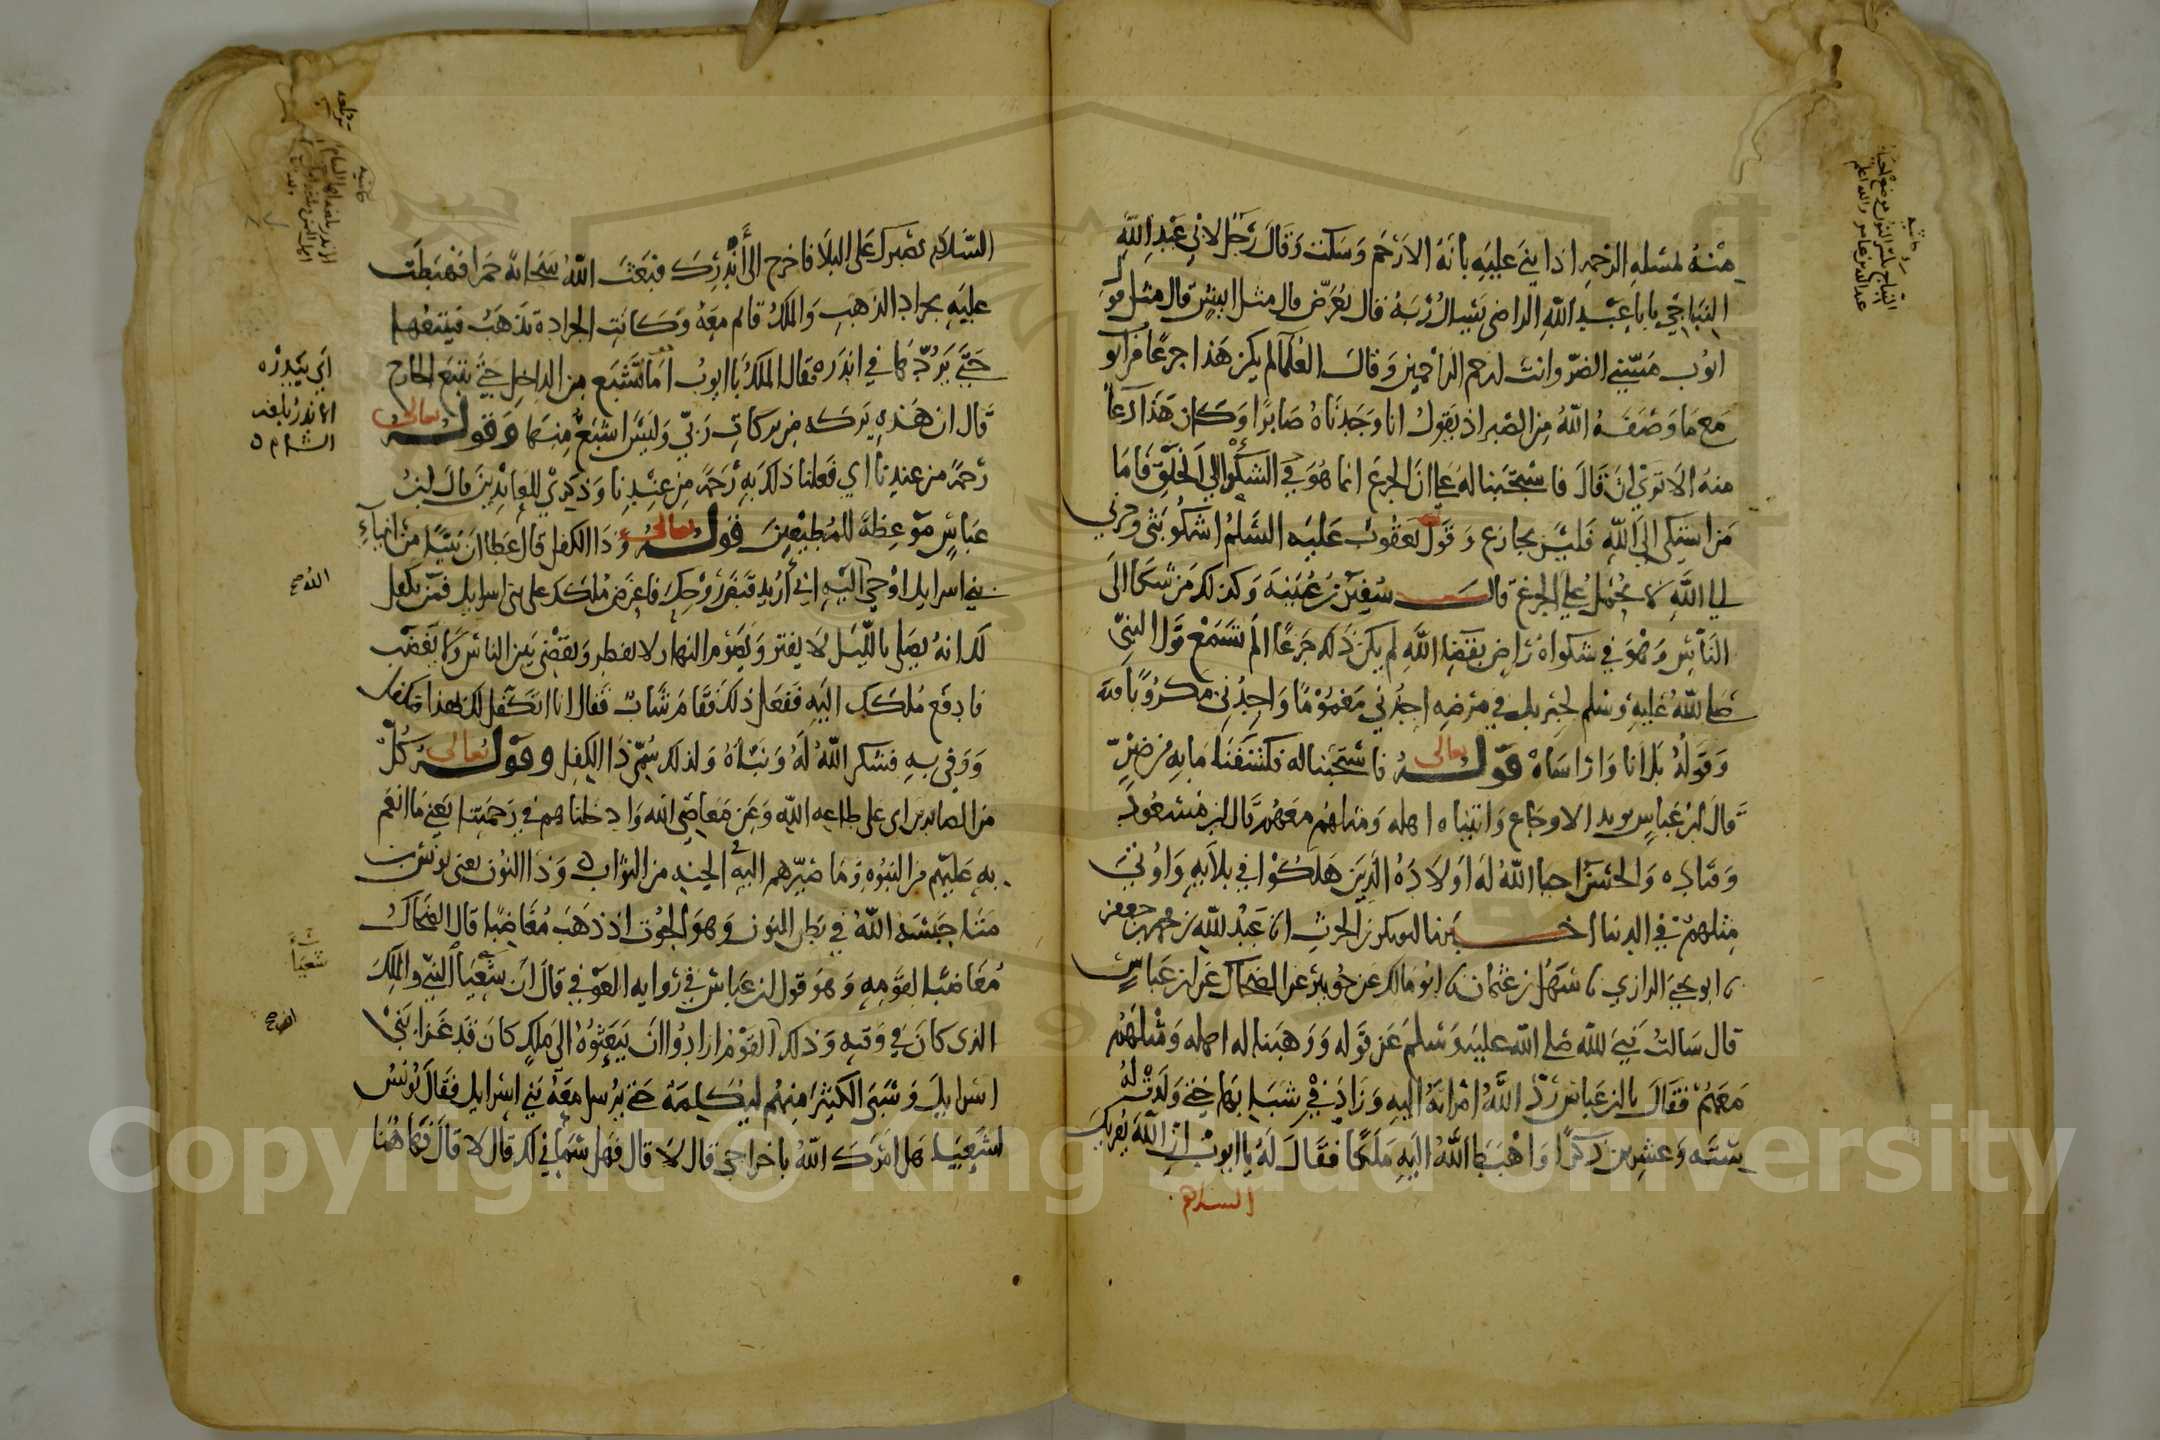 منه لمسله الرحمه اذا يني عليه بانه الارحم وسكت وقال رجل لابي عبد الله
النباجي يابا عبد الله الراضي يسل ربه قال يعرض قال مثل ايش قال مثل قول
ايوب مسني الضر وانت ارحم الراحمين وقال العلما لم يكن هذا جزعا من ايوب
مع ما وصفه الله من الصبر اذ يقول انا وجدناه صابرا وكان هذا دعاً
منه الا ترى ان قال فاستجبنا له على ان الجزع انما هو في الشكوى الى الخلق فاما
من اشتكى الى الله فليس بجازع وقول يعقوب عليه السلم اشكو بثي وحزني
الى الله لا يحمل على الجزع قال سفين بن عيينه وكذلك من شكا الى
الناس وهو في شكواه راض بقضا الله لم يكن ذلك جزعا الم تسمع قول النبي
صلى الله عليه وسلم لجبريل في مرضه اجدني مغموما واجدني مكروبا
وقوله بل انا وا راساه قوله تعالى فاستجبنا له فكشفنا ما به من ضر
قال ابن عباس يريد الاوجاع واتيناه اهله ومثلهم معهم قال ابن مسعود
وقتاده والحسن احيا الله له اولاده الذين هلكوا في بلايه واوتي
مثلهم في الدنيا اخبرنا ابو بكر بن الحرث انا عبد الله بن محمد بن جعفر
نا ابو يحيى الرازي نا سهل بن عثمان نا ابو مالك عن جويبر عن الضحاك عن ابن عباس
قال سالت نبي الله صلى الله عليه وسلم عن قوله ووهبنا له اهله ومثلهم
معهم فقال يا ابن عباس رد الله امراته اليه وزاد في شبابها حتى ولدت له
سته وعشرين ذكرا واهبط الله اليه ملكا فقال له يا ايوب ان الله يقريك
السلام
رد حاشيه
النباج بلد النون موضع
عبد الله بن عامر والله اعلم
السلام بصبرك على البلا فاخرج الى أندرك فبعث الله سحابة حمرا فهبطت
عليه بجراد الذهب والملك قائم معه وكانت الجرادة تذهب فيتبعها
حتى يردها في اندره فقال الملك يا ايوب اما تشبع من الداخل حتى تتبع الخارج
قال ان هذه بركه من بركات ربي وليس اشبع منها وقوله تعالى
رحمة من عندنا اي فعلنا ذلك به رحمة من عندنا وذكرى للعابدين قال ابن
عباس موعظة للمطيعين قوله تعالى وذا الكفل قال عطا ان نبيا من انبياء
بني اسرايل اوحى اليه اني اريد قبض روحك فاعرض ملكك على بني اسرايل فمن تكفل
لك انه يصلي بالليل لا يفتر ويصوم النهار لا يفطر ويقضي بين الناس ولا يغضب
فادفع ملكك اليه ففعل ذلك فقام شاب فقال انا اتكفل لك بهذا فتكفل
ووفى به فشكر الله له ونباه ولذلك سمي ذا الكفل وقوله تعالى كل
من الصابرين اي على طاعه الله وعن معاصي الله وادخلناهم في رحمتنا يعني ما انعم
به عليهم من النبوه وما صيرهم اليه في الجنه من الثواب وذا النون يعني يونس بن
متا حبسه الله في بطن النون وهو الحوت اذ ذهب مغاضبا قال الضحاك
مغاضبا لقومه وهو قول ابن عباس في روايه العوفي قال ان شعيا النبي والملك
الذي كان في وقته وذلك القوم ارادوا ان يبعثوه الى ملك كان قد غزا بني
اسرايل وسبى الكثير منهم ليكلمه حتى يرسل معه بني اسرايل فقال يونس
لشعيا هل امرك الله باخراجي قال لا قال فهل سماني لك قال لا قال فهاهنا
حاشيه
ابي بيدره
الاندر بلغه
الشام
الله صح
شعيا